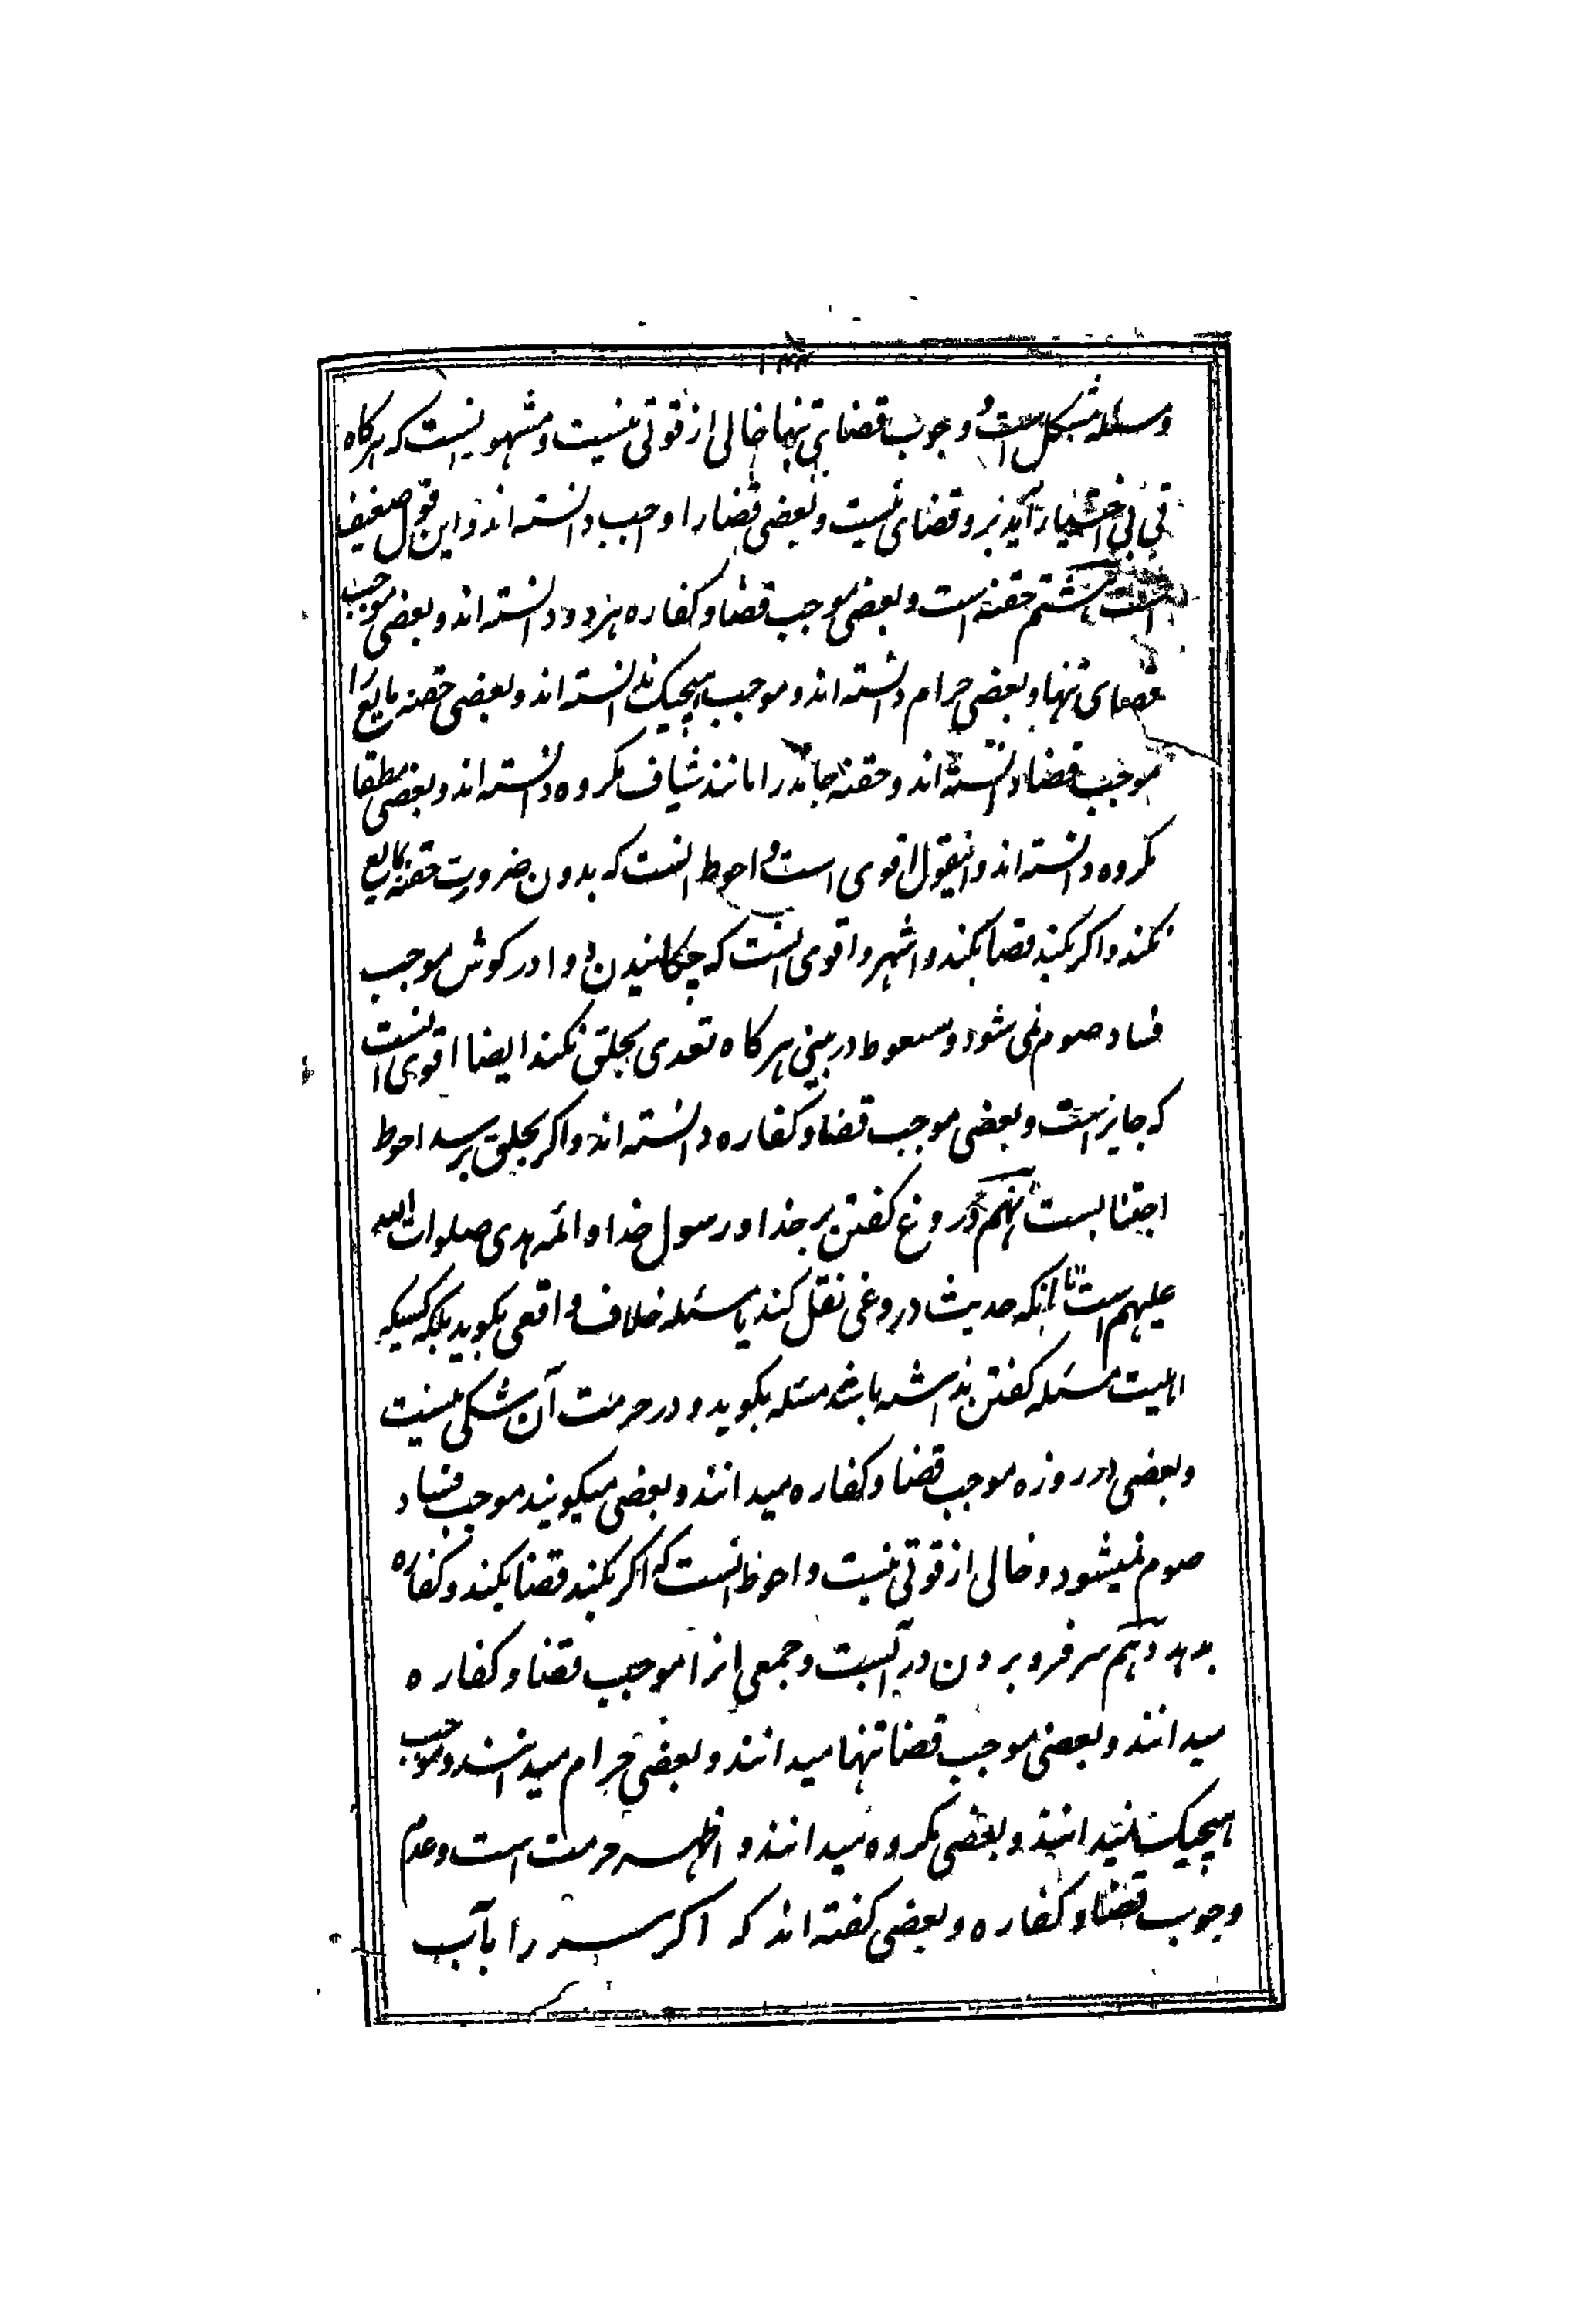 ۱۴۴
و مسئله مشکل است و جوب قضای تنها خالی از قوتی نیست و مشهور اینست که هرگاه
قی بی اختیار آید بر و قضای نیست و بعضی قضا را واجب دانسته اند و این قول ضعیف
است هشتم حقنه است و بعضی موجب قضا و کفاره هر دو دانسته اند و بعضی موجب
قضای تنها و بعضی حرام دانسته اند و موجب هیچیک ندانسته اند و بعضی حقنه مایع را
موجب قضا دانسته اند و حقنه جامد را مانند شیاف مکروه دانسته اند و بعضی مطلقا
مکروه دانسته اند و اینقول اقوی است و احوط انست که بدون ضرورت حقنه مایع
نکند و اکر بکند قضا بکند و اشهر و اقوی انست که چکانیدن دوا در کوش موجب
فساد صوم نمی شود و سعوط در بینی هرکاه تعدی بحلق نکند ایضا اقوی انست
که جایز است و بعضی موجب قضا و کفاره دانسته اند و اکر بحلق برسد احوط
اجتنابست نهم دروغ کفتن بر خدا و رسول خدا و ائمه هدی صلوات الله
علیهم است با انکه حدیث دروغی نقل کند یا مسئله خلاف واقعی بکوید بلکه کسیکه
اهلیت مسئله کفتن نداشته باشد مسئله بکوید و در حرمت آن شکی نیست
و بعضی در روزه موجب قضا و کفاره میدانند و بعضی میکویند موجب فساد
صوم نمیشود و خالی از قوتی نیست و احوط انست که اکر بکند قضا بکند و کفاره
بدهد دهم سر فرو بردن در آبست و جمعی انرا موجب قضا و کفاره
میدانند و بعضی موجب قضا تنها میدانند و بعضی حرام میدانند و موجب
هیچیک نمیدانند و بعضی مکروه میدانند و اظهر حرمت است و عدم
وجوب قضا و کفاره و بعضی کفته اند که اکر سر را بآب